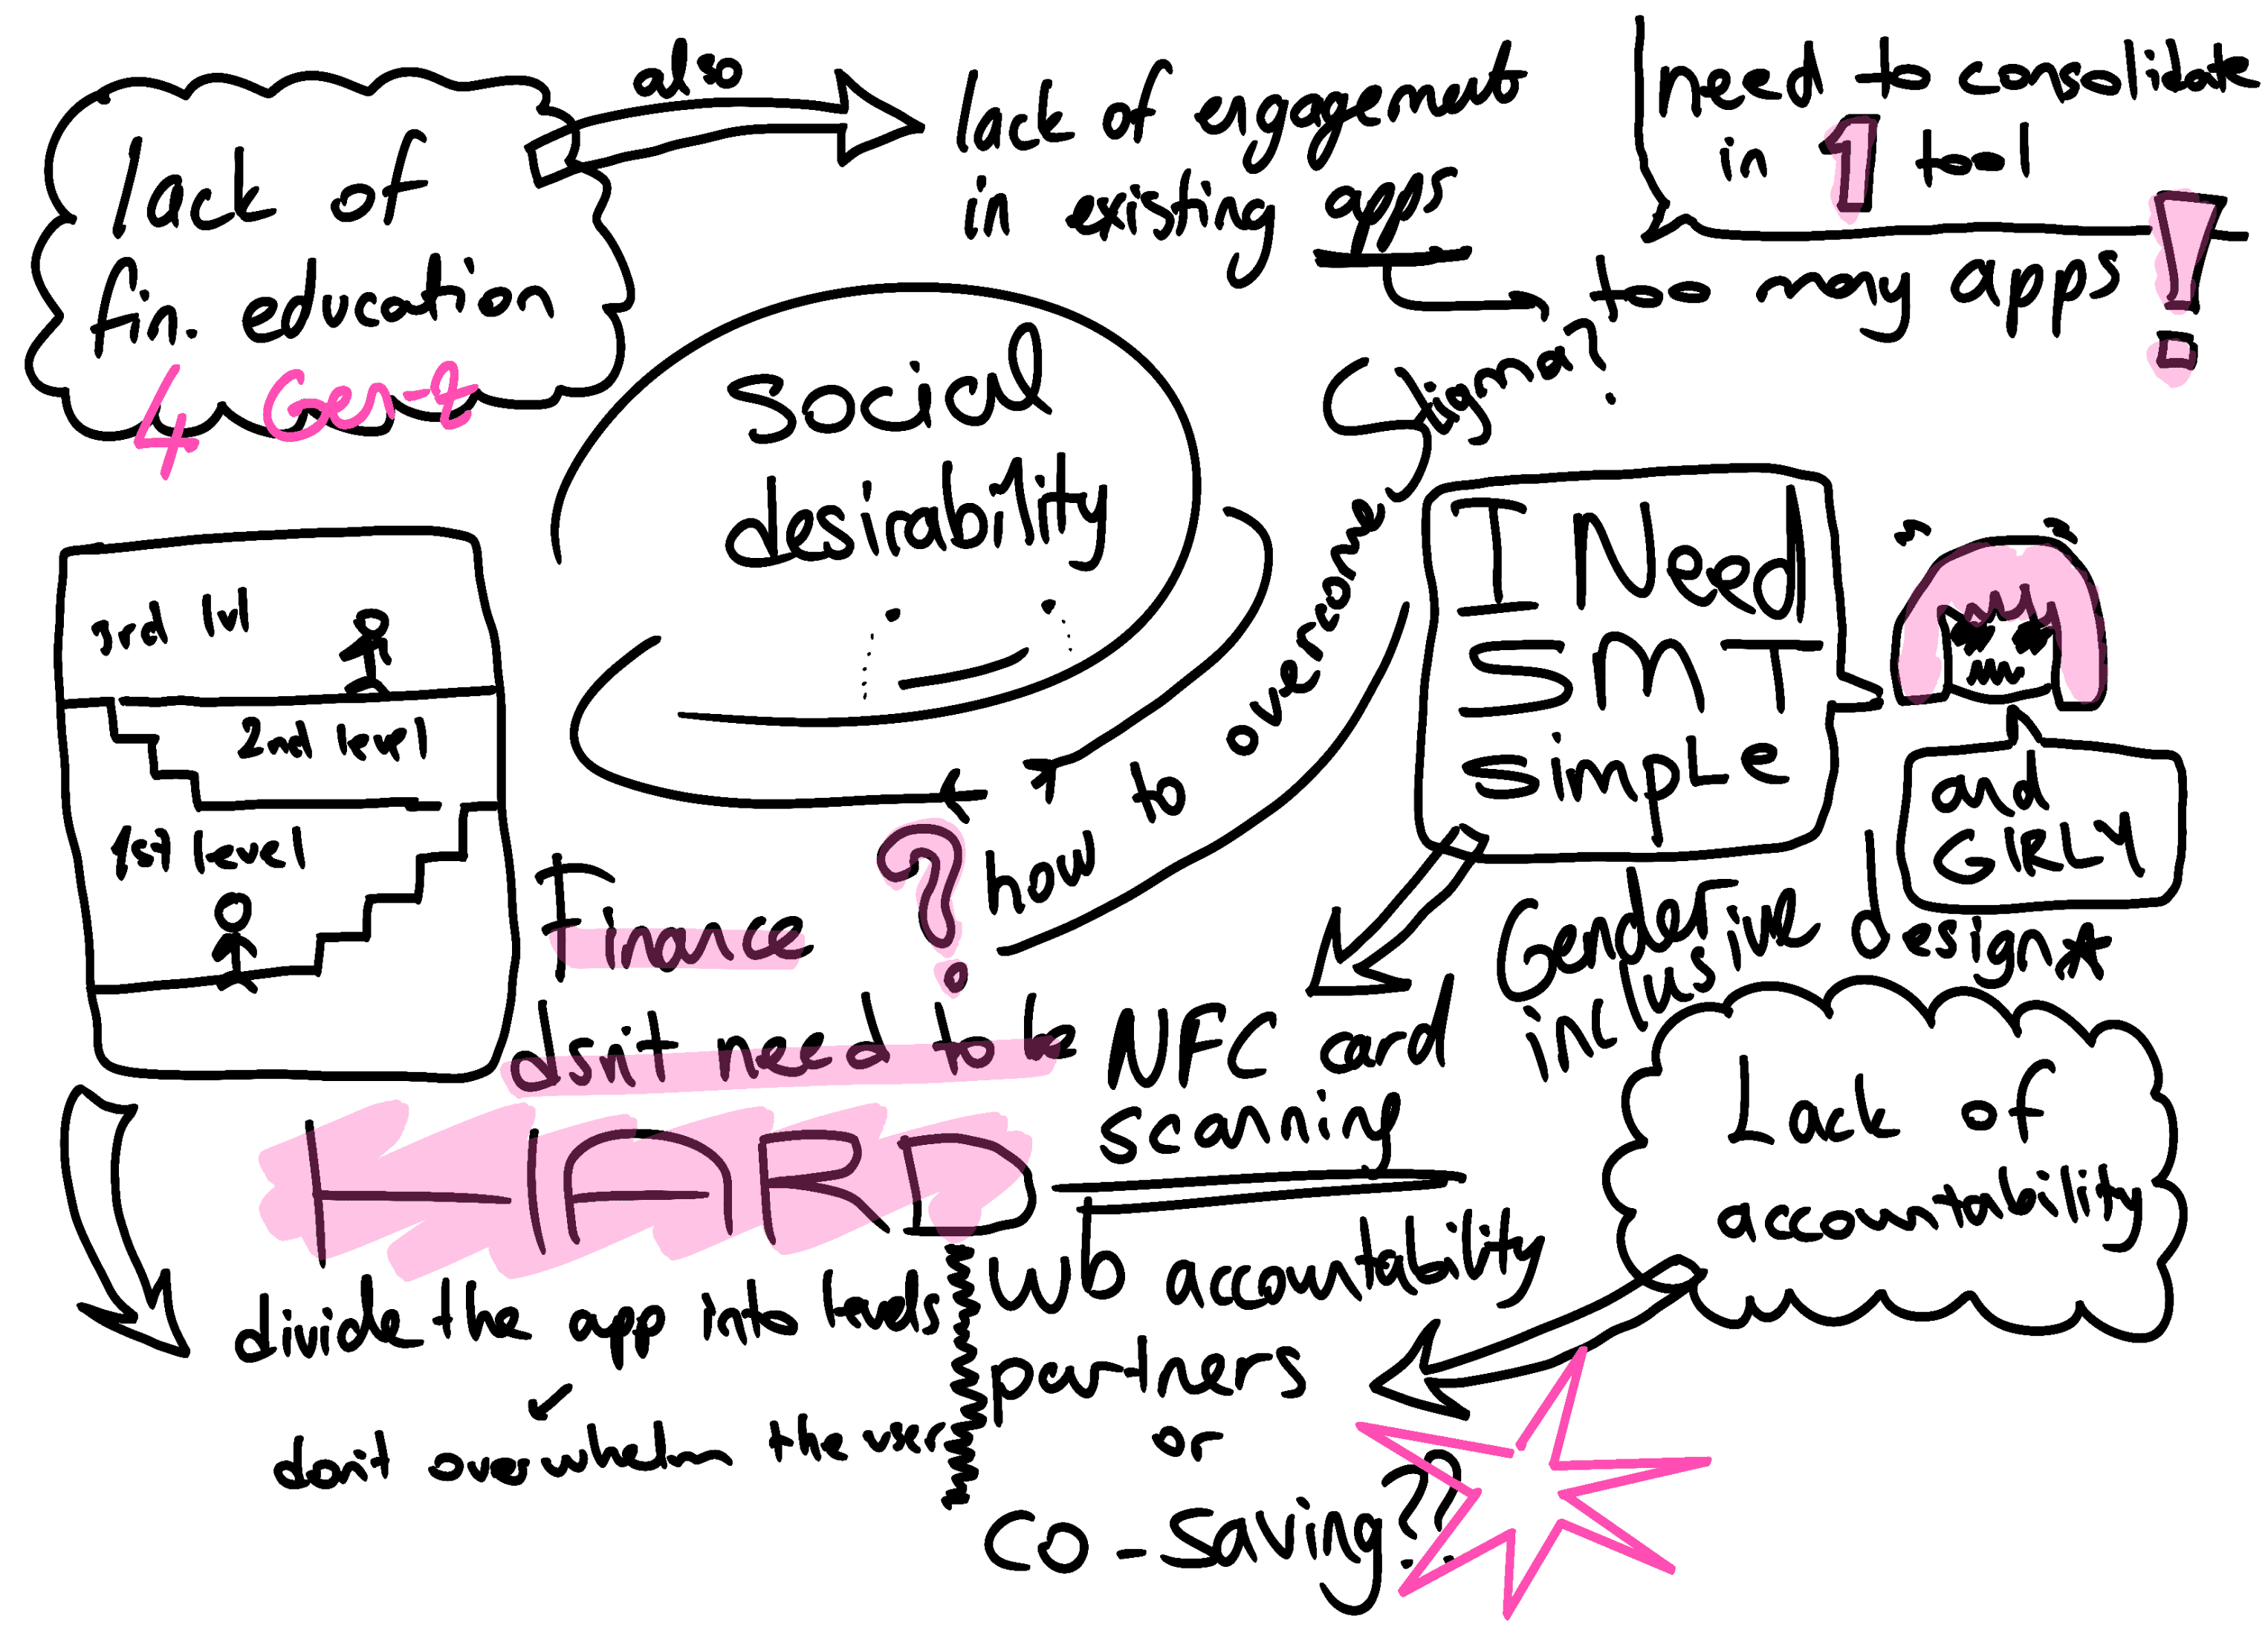 lack of
fin. education
4 Gen-z
also
lack of engagement
in existing apps
need to consolidate
in 1 tool
too many apps !
social
desirability
how to overcome stigma?
?
I Need
SMT
SimpLe
and
GIRLY
Gender
inclusive
design*
3rd lvl
2nd level
1st level
Finance
dsn't need to be
HARD
divide the app into levels
don't overwhelm the user
NFC card
scanning
Lack of
accountability
wb accountability
partners
or
co-saving??